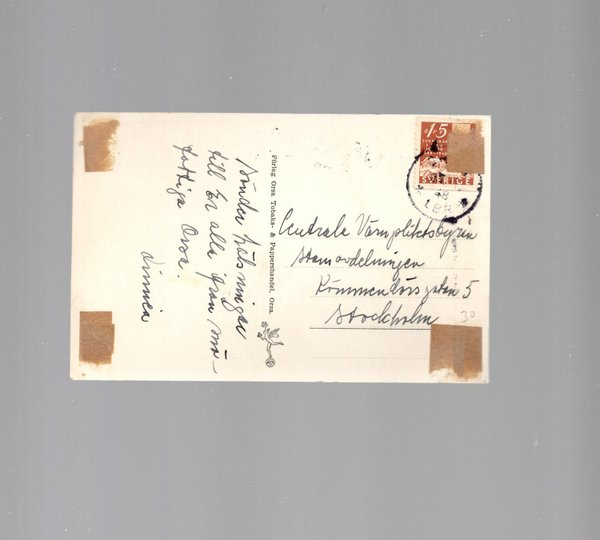 Sänder hälsningar
till Er alla från
fattiga Orsa.
Linnéa
Förlag Orsa Tobaks- & Pappershandel, Orsa.
15
SVERIGE
LBR
Centrala Värnpliktsbyrån
Stamavdelningen
Kommendörsgatan 5
Stockholm
30